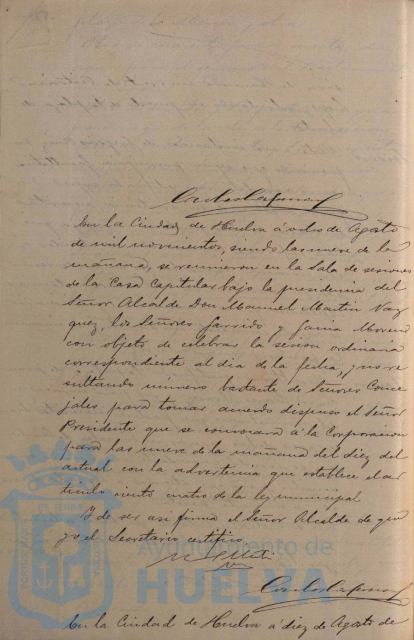 En la Ciudad de Huelva á ocho de Agosto
de mil novecientos, siendo las nueve de la
mañana, se reunieron en la Sala de sesiones
de la Casa Capitular bajo la presidencia del
Señor Alcalde Don Manuel Martin Vaz
quez, los Señores Garrido y Garcia Moreno
con objeto de celebrar la sesion ordinaria
correspondiente al dia de la fecha, y no re
sultando número bastante de Señores Conce
jales para tomar acuerdo dispuso el Señor
Presidente que se convocara á la Corporacion
para las nueve de la mañana del diez del
actual con la advertencia que establece el ar
tículo ciento cuatro de la ley municipal.
Y de ser asi firma el Señor Alcalde de que
yo el Secretario certifico.
Ayuntamiento de
HUELVA
En la Ciudad de Huelva á diez de Agosto de